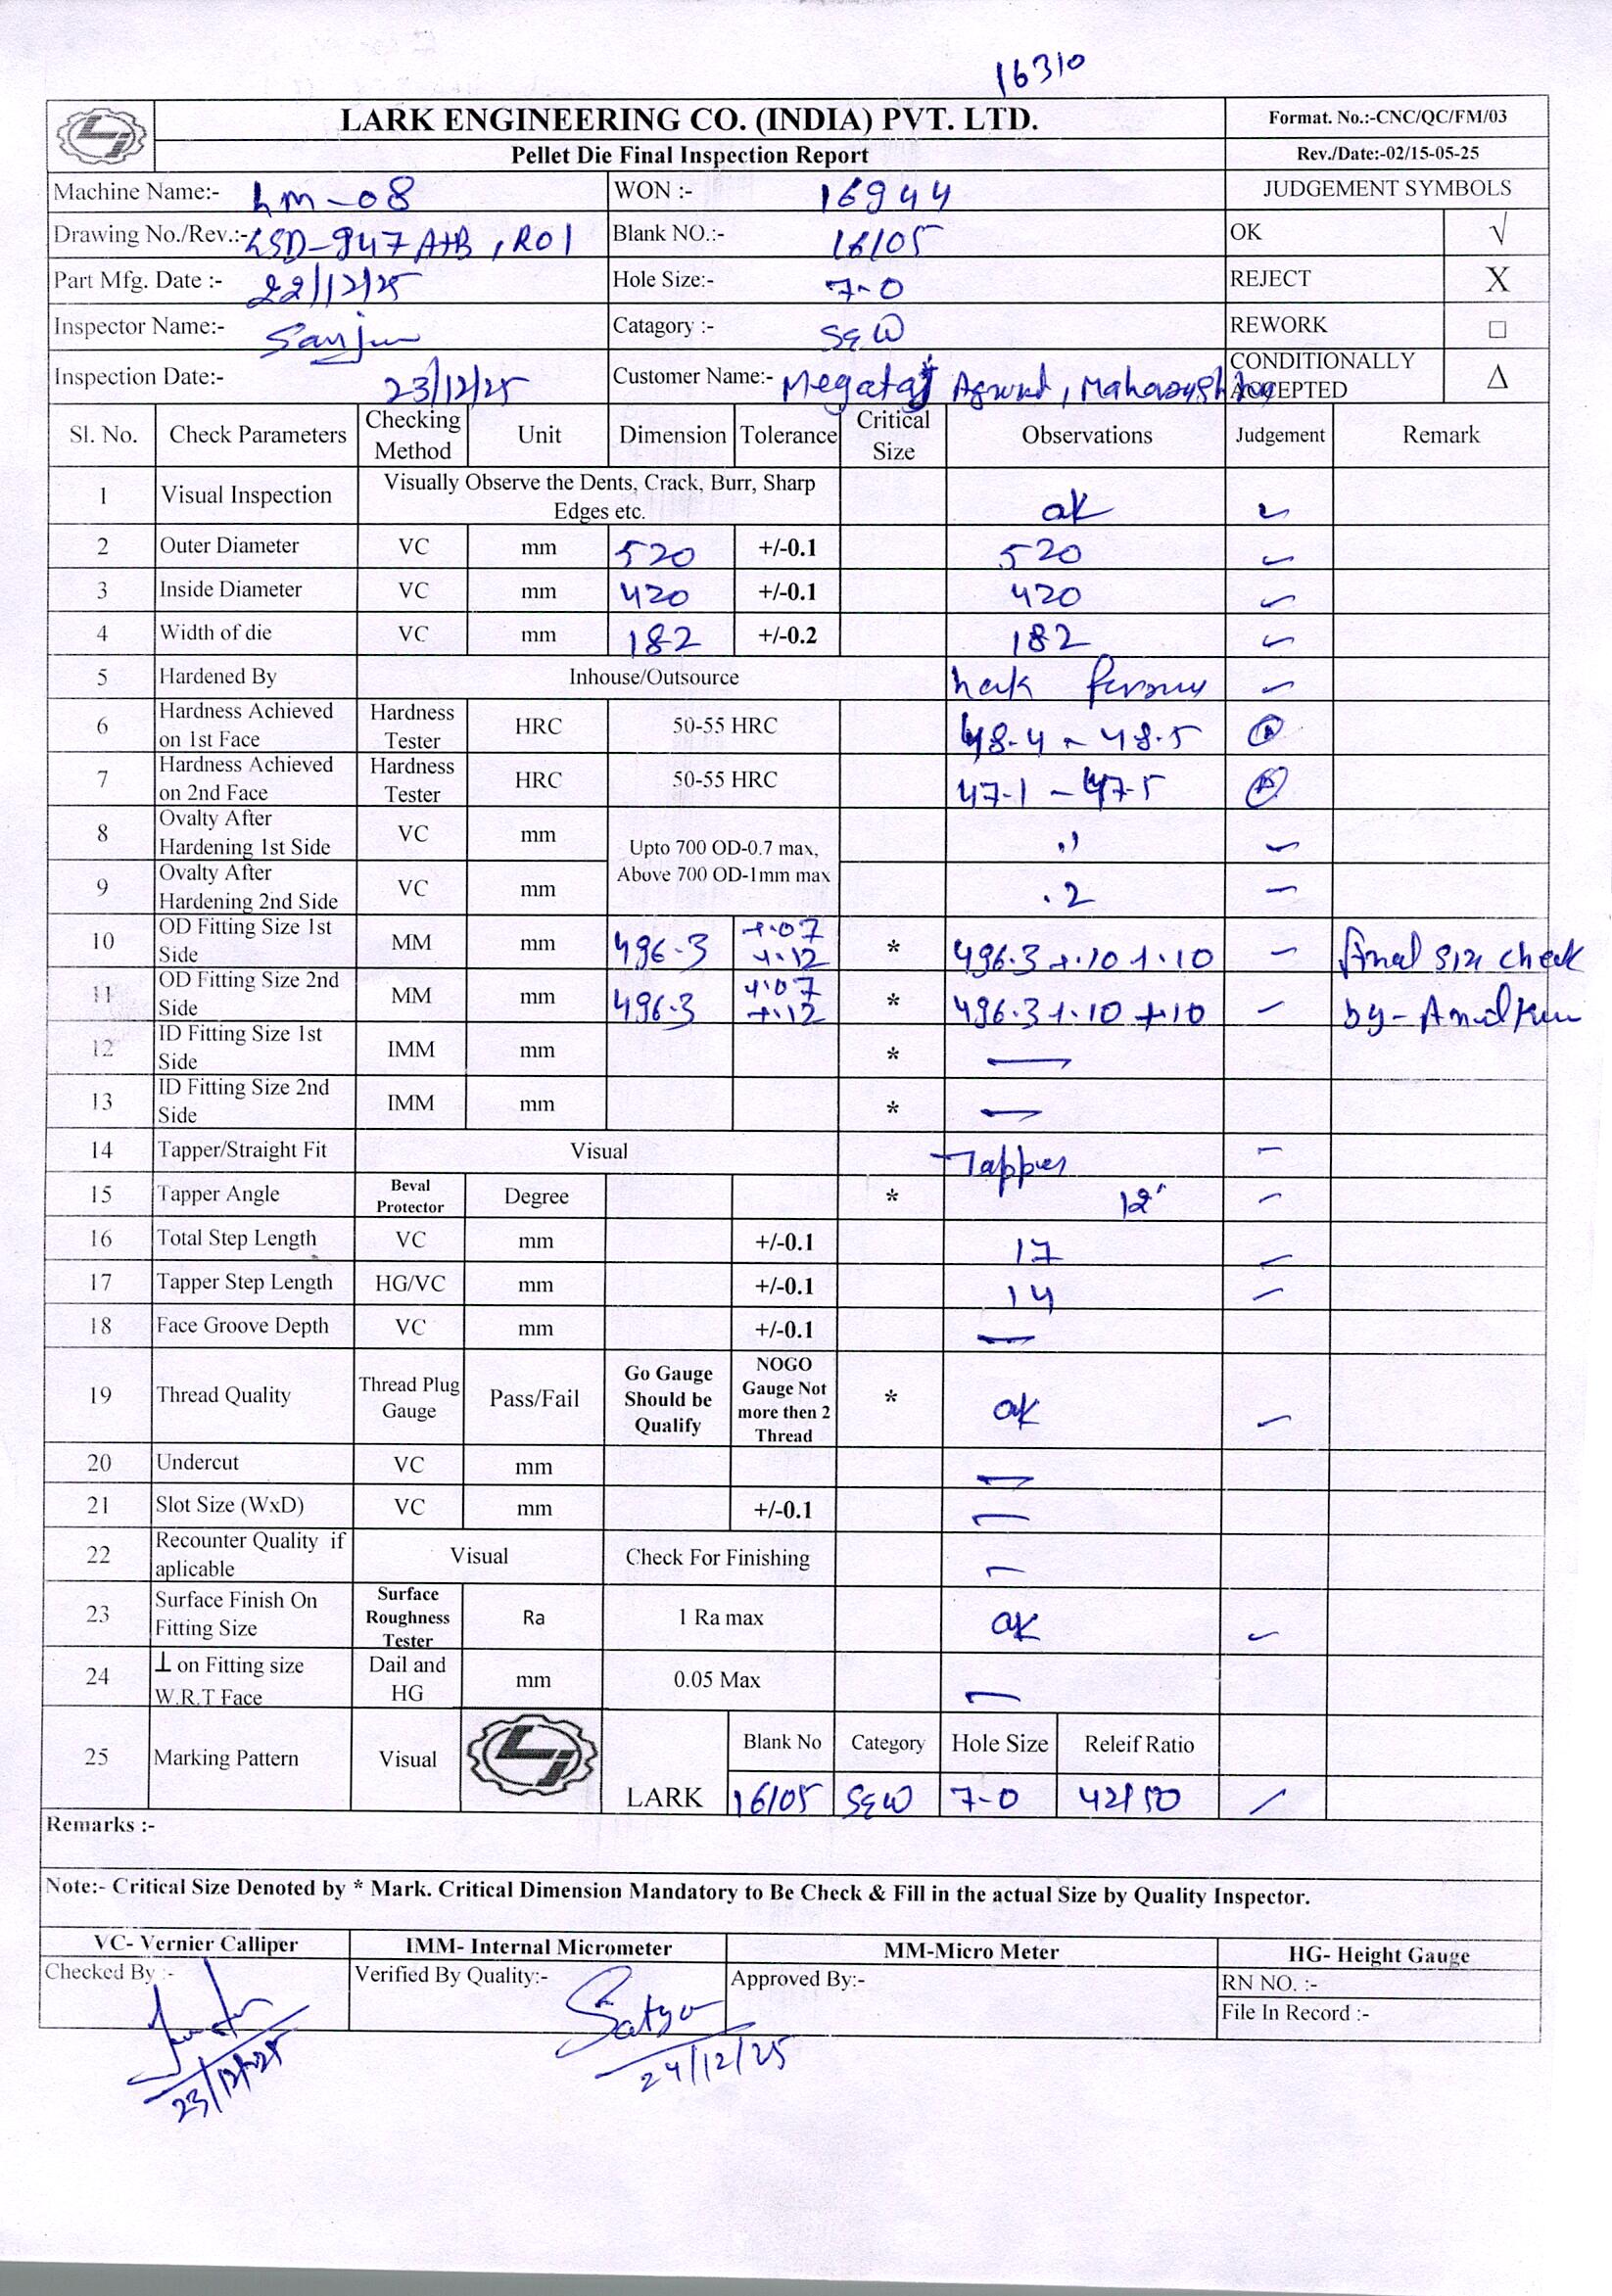 16310
LARK ENGINEERING CO. (INDIA) PVT. LTD. Format. No.:-CNC/QC/FM/03
Pellet Die Final Inspection Report Rev./Date:-02/15-05-25
Machine Name:- Lm-08 WON :- 16944 JUDGEMENT SYMBOLS
Drawing No./Rev.:- LSD-947 A+B, R01 Blank NO.:- 16105 OK √
Part Mfg. Date :- 22/12/25 Hole Size:- 7-0 REJECT X
Inspector Name:- Sanju Catagory :- S&W REWORK □
Inspection Date:- 23/12/25 Customer Name:- Maharashtra CONDITIONALLY ACCEPTED Δ
Sl. No. Check Parameters Checking Method Unit Dimension Tolerance Critical Size Observations Judgement Remark
1 Visual Inspection Visually Observe the Dents, Crack, Burr, Sharp Edges etc. ok ✓
2 Outer Diameter VC mm 520 +/-0.1 520 ✓
3 Inside Diameter VC mm 420 +/-0.1 420 ✓
4 Width of die VC mm 182 +/-0.2 182 ✓
5 Hardened By Inhouse/Outsource ✓
6 Hardness Achieved on 1st Face Hardness Tester HRC 50-55 HRC 48.4 - 48.5
7 Hardness Achieved on 2nd Face Hardness Tester HRC 50-55 HRC 47.1 - 47.5
8 Ovalty After Hardening 1st Side VC mm Upto 700 OD-0.7 max, Above 700 OD-1mm max .1 ✓
9 Ovalty After Hardening 2nd Side VC mm .2 ✓
10 OD Fitting Size 1st Side MM mm 496.3 +.07 +.12 * 496.3 +.10 +.10 ✓ final size check
11 OD Fitting Size 2nd Side MM mm 496.3 +.07 +.12 * 496.3 +.10 +.10 ✓ by-
12 ID Fitting Size 1st Side IMM mm * —
13 ID Fitting Size 2nd Side IMM mm * —
14 Tapper/Straight Fit Visual Tapper ✓
15 Tapper Angle Beval Protector Degree * 12° ✓
16 Total Step Length VC mm +/-0.1 17 ✓
17 Tapper Step Length HG/VC mm +/-0.1 14 ✓
18 Face Groove Depth VC mm +/-0.1 —
19 Thread Quality Thread Plug Gauge Pass/Fail Go Gauge Should be Qualify NOGO Gauge Not more then 2 Thread * ok ✓
20 Undercut VC mm —
21 Slot Size (WxD) VC mm +/-0.1 —
22 Recounter Quality if aplicable Visual Check For Finishing —
23 Surface Finish On Fitting Size Surface Roughness Tester Ra 1 Ra max ok ✓
24 ⊥ on Fitting size W.R.T Face Dail and HG mm 0.05 Max —
25 Marking Pattern Visual LARK Blank No Category Hole Size Releif Ratio
16105 S&W 7-0 42/50 ✓
Remarks :-
Note:- Critical Size Denoted by * Mark. Critical Dimension Mandatory to Be Check & Fill in the actual Size by Quality Inspector.
VC- Vernier Calliper IMM- Internal Micrometer MM-Micro Meter HG- Height Gauge
Checked By :- Verified By Quality:- Satya Approved By:- RN NO. :-
File In Record :-
23/12/25 24/12/25